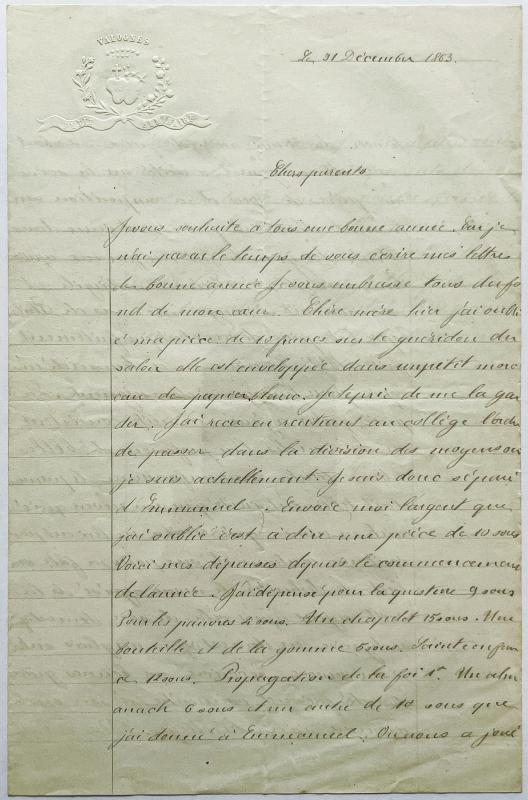 VALOGNES
PETIT SÉMINAIRE
Le 31 Décembre 1863.
Chers parents
Je vous souhaite à tous une bonne année. Car je
n'ai pas eu le temps de vous écrire mes lettres
de bonne année Je vous embrasse tous du fo
nd de mon cœur. Chère mère hier j'ai oubli
é ma pièce de 10 francs sur le guéridon du
salon elle est enveloppée dans un petit morc
eau de papier blanc. Je te prie de me la gar
der. J'ai reçu en rentrant au collège l'ordre
de passer dans la division des moyens où
je suis actuellement. Je suis donc séparé
d'Emmanuel. Envoie moi l'argent que
j'ai oublié c'est à dire une pièce de 10 sous
Voici mes dépenses depuis le commencement
de l'année. J'ai dépensé pour la questure 9 sous
Pour les pauvres 2 sous. Un chapelet 15 sous. Une
bouteille et de la gomme 6 sous. Sainte enfan
ce 12 sous. Propagation de la foi 1f. Un alm
anach 6 sous et un autre de 10 sous que
j'ai donné à Emmanuel. On nous a joué